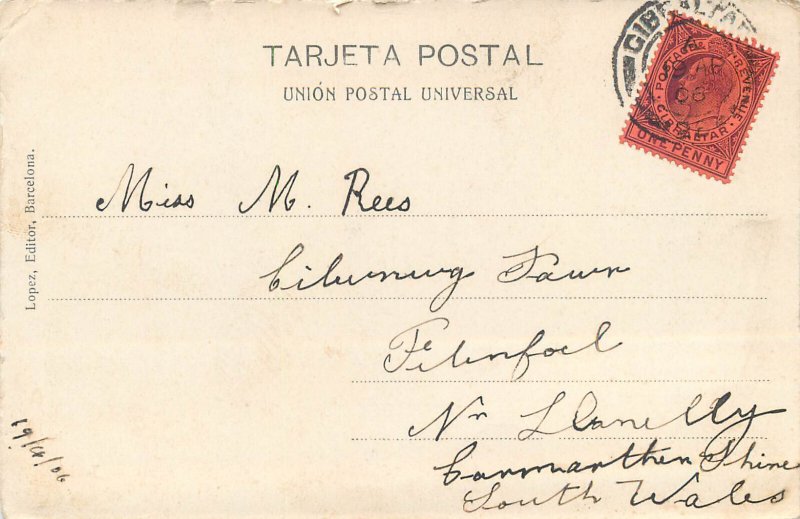 TARJETA POSTAL
UNIÓN POSTAL UNIVERSAL
GIBRALTAR
06
POSTAGE & REVENUE
GIBRALTAR
ONE PENNY
Lopez, Editor, Barcelona.
Miss M. Rees
Farm
Felinfoel
Nr Llanelly
Carmarthen Shire
South Wales
19/4/06